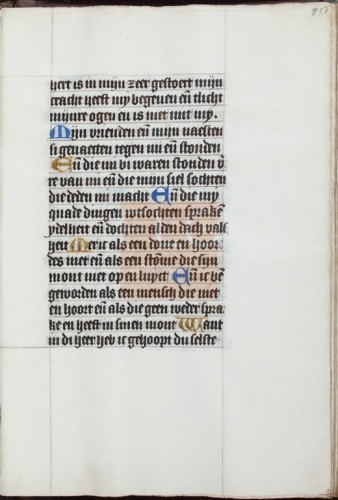 hert is in mijn zeer gestoert mijn
cracht heeft my begeuen en̄ tlicht
mijnre ogen en is met mit my.
Mijn vrienden en̄ mijn naesten
si genaecten tegen mi en̄ stonden
En̄ die mi bi waren stonden v̄
re van mi en̄ die mijn siel sochten
die deden mi macht En̄ die my
quade dingen wtsochten sprakē
ydelheit en̄ dochten al den dach vals
heit Mer ic als een doue en hoor
des niet en̄ als een stōme die sijn
mont niet op en luyct En̄ ic bē
geworden als een mensch die niet
en hoort en̄ als die geen weder spra
ke en heeft in sinen mont Want
in di heer heb ic gehoopt du selste